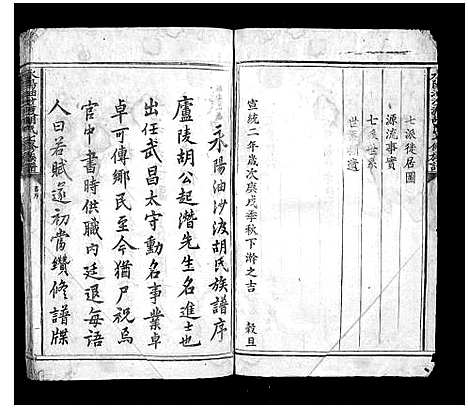 七派徙居圖
源流事實
七美世系
世系
遺
宣統二年歲次庚戌季秋下澣之吉 穀旦
永陽油沙波胡氏族譜序
廬陵胡公起潛先生名進士也
出任武昌太守勳名事業卓
卓可傳鄉民至今猶尸祝焉
官中書時供職內廷退每語
人曰若賦遂初當纘修譜牒